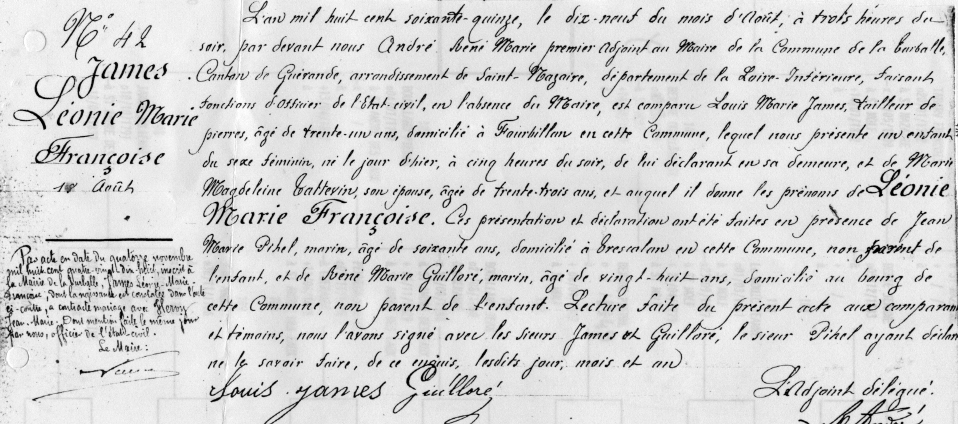 N° 42
James
Léonie Marie
Françoise
18 Août
L'an mil huit cent soixante-quinze, le dix-neuf du mois d'Août, à trois heures du
soir, par devant nous André René Marie premier Adjoint au Maire de la Commune de la Turballe,
Canton de Guérande, arrondissement de Saint-Nazaire, département de la Loire-Inférieure, faisant
fonctions d'Officier de l'Etat-civil, en l'absence du Maire, est comparu Louis Marie James, tailleur de
pierres, âgé de trente-un ans, domicilié à Fourbillan en cette Commune, lequel nous présente un enfant
du sexe féminin, né le jour d'hier, à cinq heures du soir, de lui déclarant en sa demeure, et de Marie
Magdeleine Tattevin, son épouse, âgée de trente-trois ans, et auquel il donne les prénoms de Léonie
Marie Françoise. Ces présentation et déclaration ont été faites en présence de Jean
Marie Pihel, marin, âgé de soixante ans, domicilié à Trescalan en cette Commune, non parent de
l'enfant, et de Réné Marie Guilloré, marin, âgé de vingt-huit ans, domicilié au bourg de
cette Commune, non parent de l'enfant Lecture faite du présent acte aux comparant
et témoins, nous l'avons signé avec les sieurs James et Guilloré, le sieur Pihel ayant déclaré
ne le savoir faire, de ce enquis, lesdits jour, mois et an
Louis James Guilloré
L'Adjoint délégué.
Par acte en date du quatorze novembre
mil huit cent quatre-vingt dix sept, inscrit à
la Mairie de la Turballe, James Léonie-Marie-
Françoise, dont la naissance est constatée dans l'acte
ci-contre, a contracté mariage avec
Jean-Marie. Dont mention faite le même jour
par nous, officier de l'Etat-civil.
Le Maire: